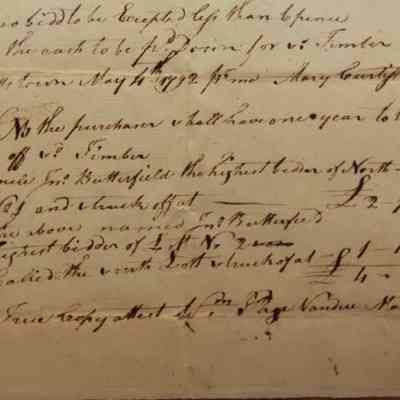 no bidd to be Excepted less than 6 pence
the cash to be pd Down for sd Timber
town May 4th 1792 pr me Mary Curtis
NB the purchaser shall have one year to
off sd Timber
Jnº Butterfield the highest bidder of North
and struck off at £ 2
the above named Jnº Butterfield
highest bidder of Lott No 2
called the south Lott struck of at £ 1 - 1
4
True Coppy attest Page Vandue Ma